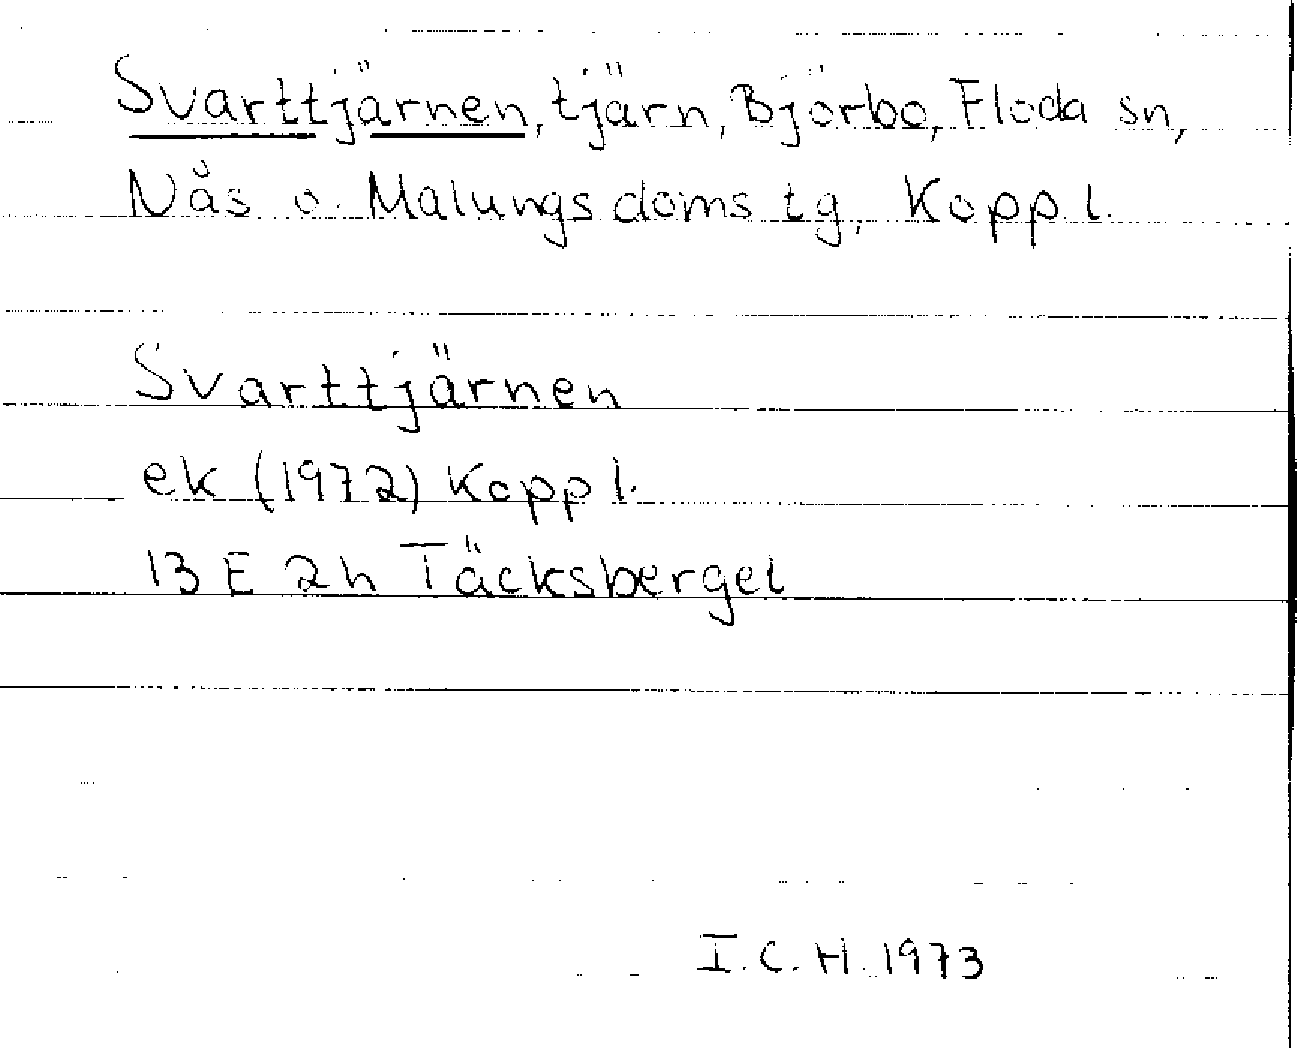 Svarttjärnen, tjärn, Björbo, Floda sn,
Nås o. Malungs doms tg, Kopp l.
Svarttjärnen
ek (1972) Kopp l.
13 E 2h Täcksberget
I.C.H. 1973